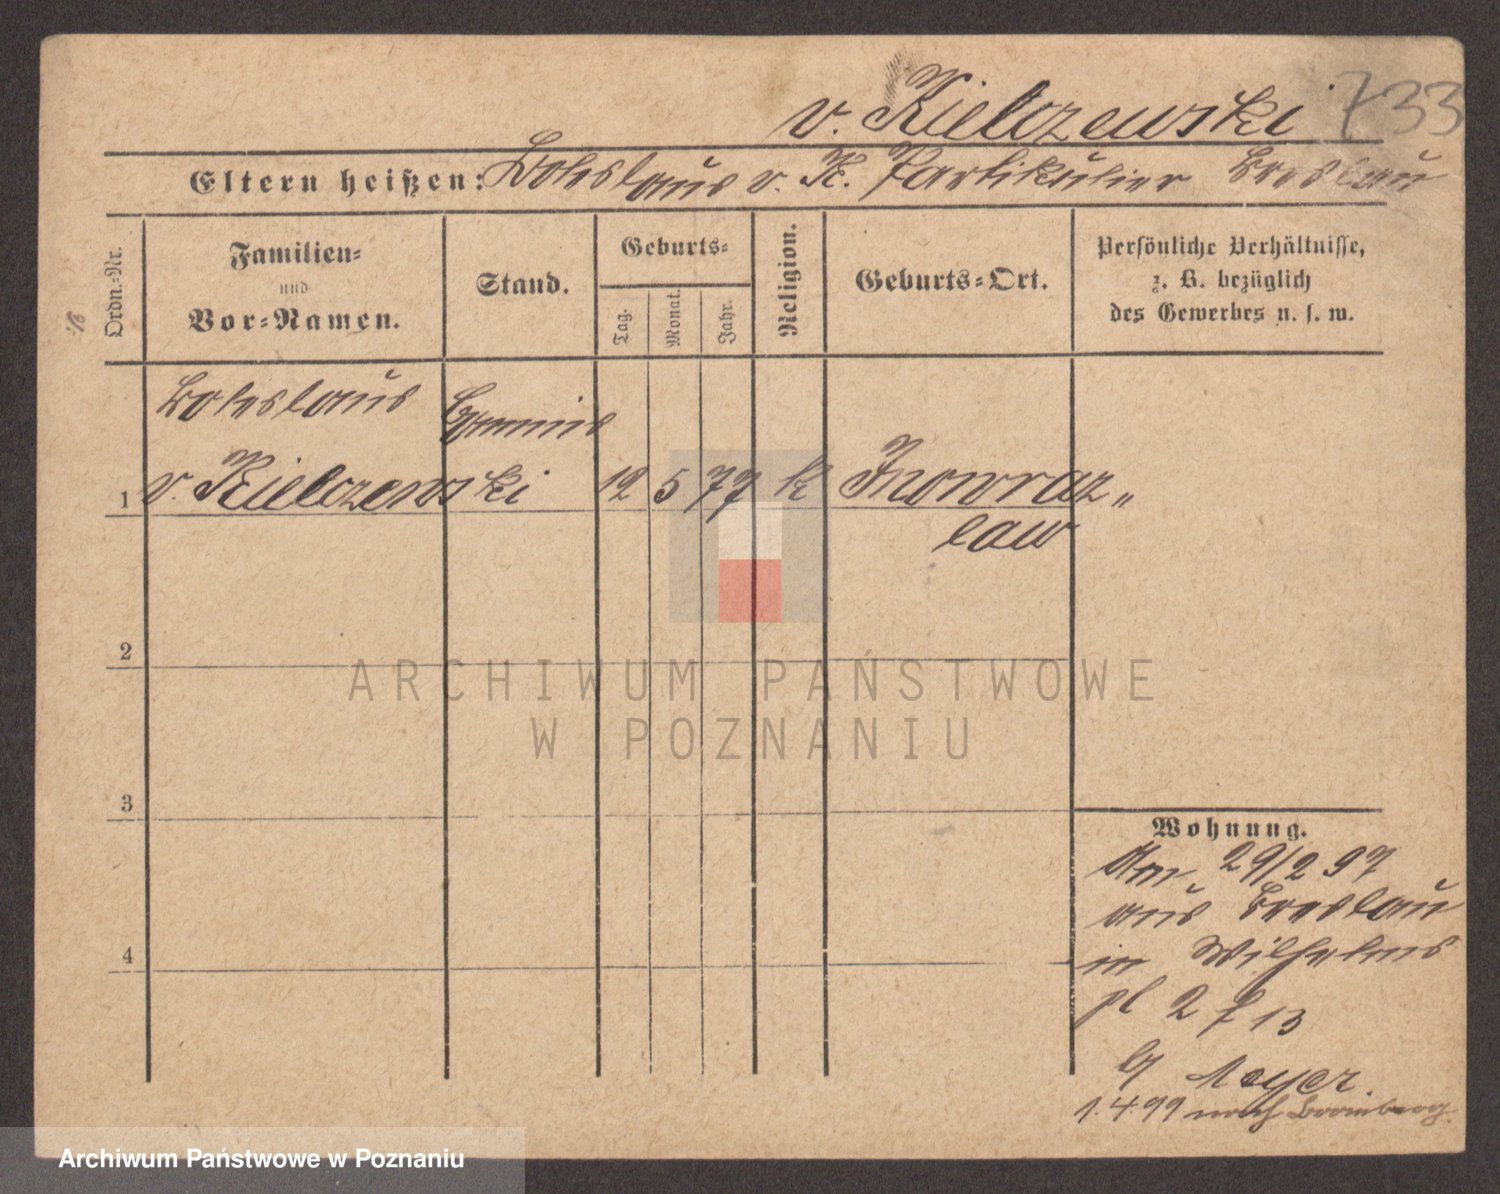 v. Kielczewski 733
Eltern heißen: Boleslaus v. K. Partikulier Breslau
Ordn.=Nr.
Familien=
und
Vor=Namen.
Stand.
Geburts=
Tag.
Monat.
Jahr.
Religion.
Geburts=Ort.
Persönliche Verhältnisse,
z. B. bezüglich
des Gewerbes u. s. w.
Boleslaus Commis
1 v. Kielczewski 12 5 77 k Inowraz„
law
2
3
4
Wohnung.
29/2 97
aus Breslau
in Wilhelms
pl 2 13
b/ Meyer.
1.4.99 nach Bromberg.
ARCHIWUM PAŃSTWOWE
W POZNANIU
Archiwum Państwowe w Poznaniu